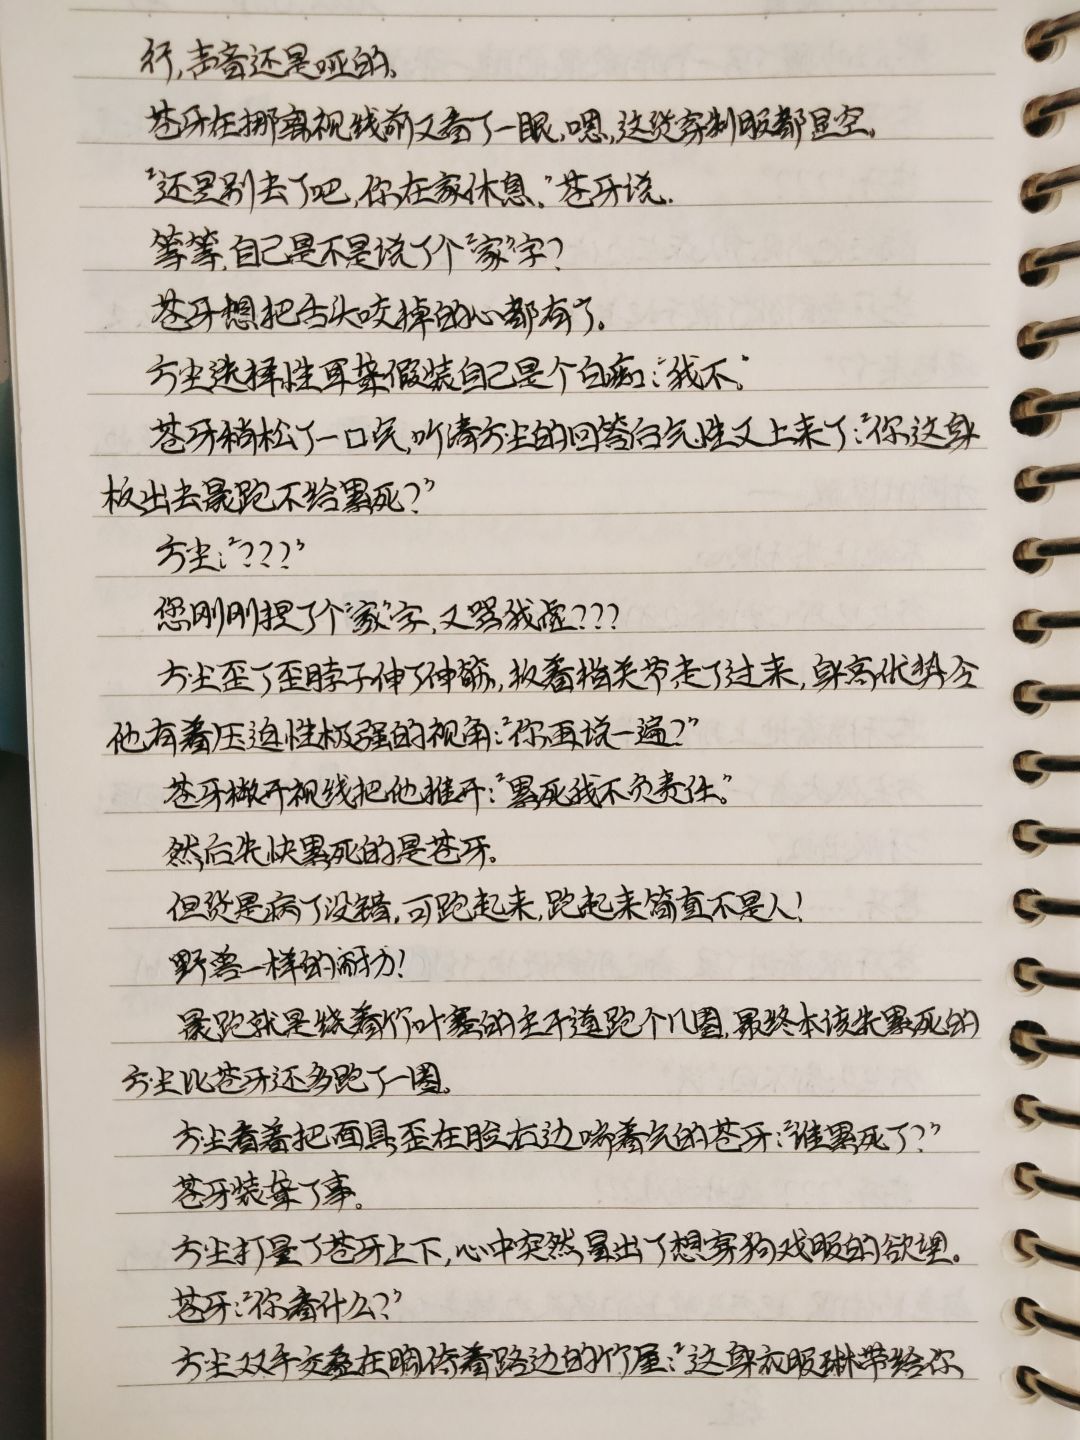 行，声音还是哑的。
苍牙在挪离视线前又看了一眼，嗯，这货穿制服都显空。
“还是别去了吧，你在家休息。”苍牙说.
等等，自己是不是说了个“家”字？
苍牙想把舌头咬掉的心都有了。
方尘选择性耳聋假装自己是个白痴：“我不。”
苍牙稍松了一口气，听清方尘的回答后气性又上来了：“你这身
板出去晨跑不给累死？”
方尘：“？？？”
您刚刚提了个“家”字，又骂我虚？？？
方尘歪了歪脖子伸了伸筋，扳着指关节走了过来，身高优势令
他有着压迫性极强的视角：“你再说一遍？”
苍牙撇开视线把他推开：“累死我不负责任。”
然后先快累死的是苍牙。
但货是病了没错，可跑起来，跑起来简直不是人！
野兽一样的耐力！
晨跑就是绕着竹叶寨的主干道跑个几圈，最终本该先累死的
方尘比苍牙还多跑了一圈。
方尘看着把面具歪在脸右边喘着气的苍牙：“谁累死了？”
苍牙装聋了事。
方尘打量了苍牙上下，心中突然冒出了想穿狗戏服的欲望。
苍牙：“你看什么？”
方尘双手交叠在胸倚着路边的竹屋：“这身衣服琳带给你